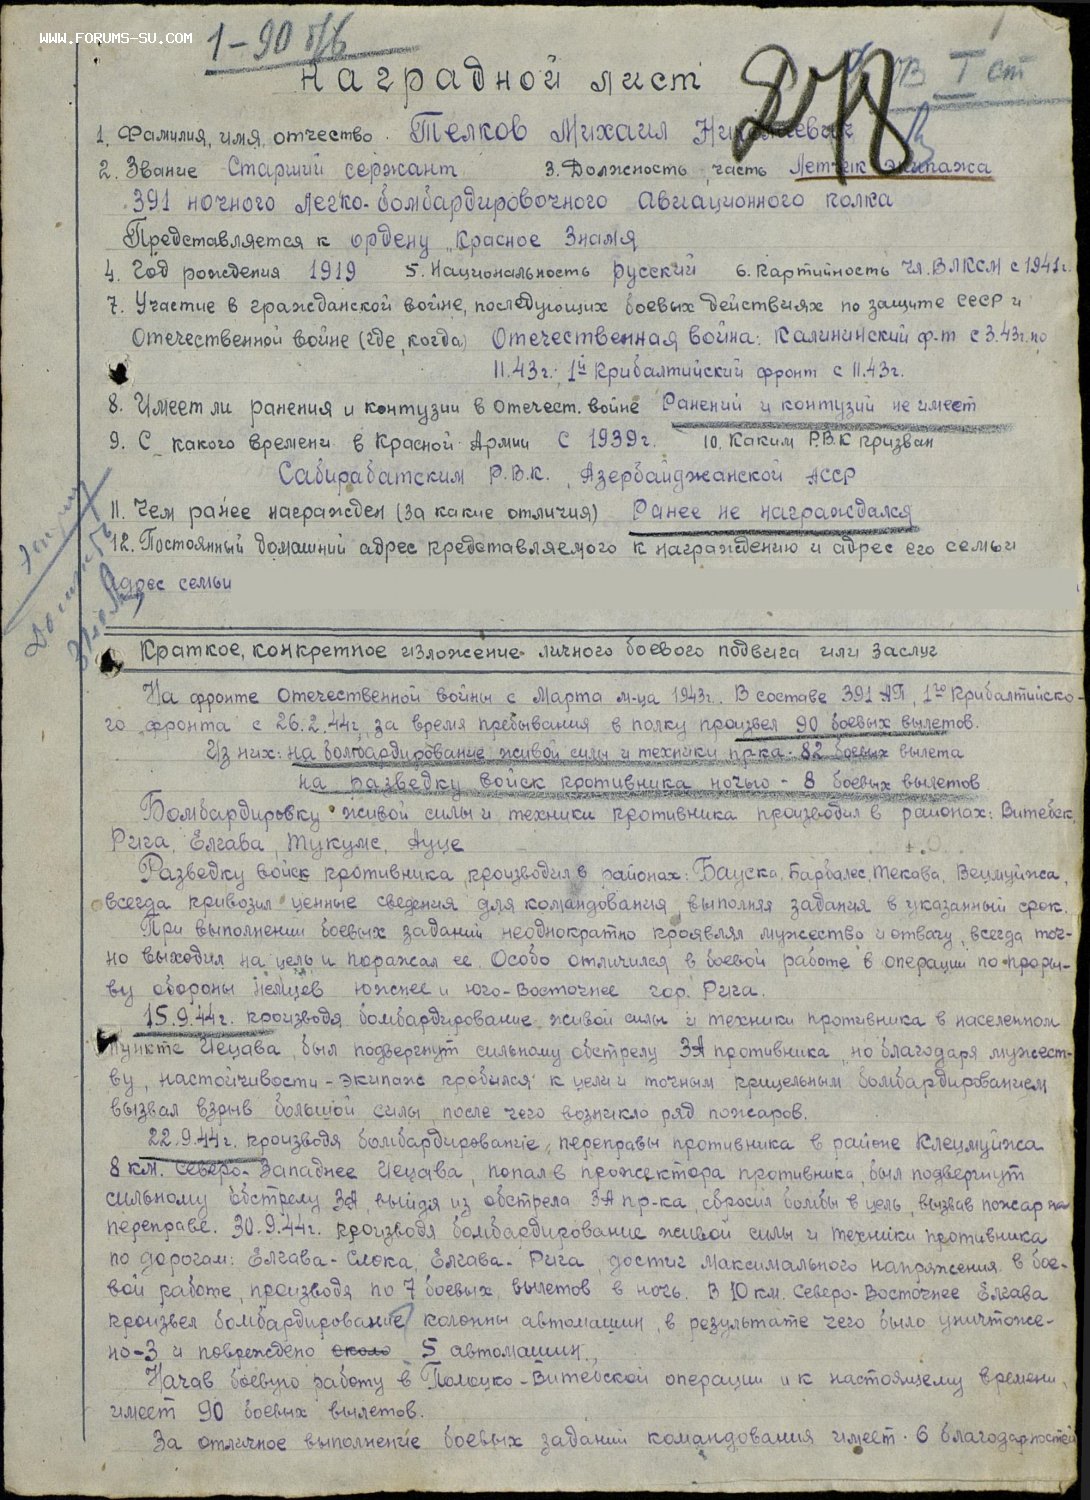 WWW.FORUMS-SU.COM
1-90 б/в
ОВ I ст
Наградной лист
1. Фамилия, имя, отчество Телков Михаил Николаевич
2. Звание Старший сержант 3. Должность, часть Летчик экипажа
391 ночного легко-бомбардировочного авиационного полка
Представляется к ордену „Красное Знамя
4. Год рождения 1919 5. Национальность русский 6. Партийность чл. ВЛКСМ с 1941г.
7. Участие в гражданской войне, последующих боевых действиях по защите СССР и
Отечественной войне (где, когда) Отечественная война: Калининский ф-т с 3.43г. по
11.43г. 1й Прибалтийский фронт с 11.43г.
8. Имеет ли ранения и контузии в отечест. войне Ранений и контузий не имеет
9. С какого времени в Красной Армии с 1939г. 10. Каким Р.В.К призван
Сабирабатским Р.В.К., Азербайджанской АССР
11. Чем ранее награжден (за какие отличия) Ранее не награждался
12. Постоянный домашний адрес представляемого к награждению и адрес его семьи
Адрес семьи
Краткое, конкретное изложение личного боевого подвига или заслуг
На фронте Отечественной войны с Марта м-ца 1943г. В составе 391 АП, 1го Прибалтийско-
го фронта с 26.2.44г, за время пребывания в полку произвел 90 боевых вылетов.
Из них: на бомбардирование живой силы и техники пр-ка - 82 боевых вылета
на разведку войск противника ночью - 8 боевых вылетов
Бомбардировку живой силы и техники противника производил в районах: Витебск,
Рига, Елгава, Тукумс, Ауце
Разведку войск противника производил в районах: Бауска, Барбалес, Мекава, Вецмуйжа,
всегда привозил ценные сведения для командования выполняя задания в указанный срок.
При выполнении боевых заданий неоднократно проявлял мужество и отвагу, всегда точ-
но выходил на цель и поражал ее. Особо отличился в боевой работе в операции по проры-
ву обороны немцев южнее и юго-Восточнее гор. Рига.
15.9.44г. производя бомбардирование живой силы и техники противника в населенном
пункте Иецава, был подвергнут сильному обстрелу ЗА противника, но благодаря мужест-
ву, настойчивости - экипаж пробился к цели и точным прицельным бомбардированием
вызвал взрыв большой силы после чего возникло ряд пожаров.
22.9.44г. производя бомбардирование, переправы противника в районе Клецмуйжа
8 км. Северо-Западнее Иецава, попал в прожектора противника, был подвергнут
сильному обстрелу ЗА, выйдя из обстрела ЗА пр-ка, сбросил бомбы в цель, вызвав пожар на
переправе. 30.9.44г. производя бомбардирование живой силы и техники противника
по дорогам: Елгава-Слока, Елгава-Рига, достиг максимального напряжения в бое-
вой работе, производя по 7 боевых вылетов в ночь. В 10 км. Северо-Восточнее Елгава
произвел бомбардирование колонны автомашин, в результате чего было уничтоже-
но-3 и повреждено около 5 автомашин.
Начав боевую работу в Полоцко-Витебской операции и к настоящему времени,
имеет 90 боевых вылетов.
За отличное выполнение боевых заданий командования имеет 6 благодарностей